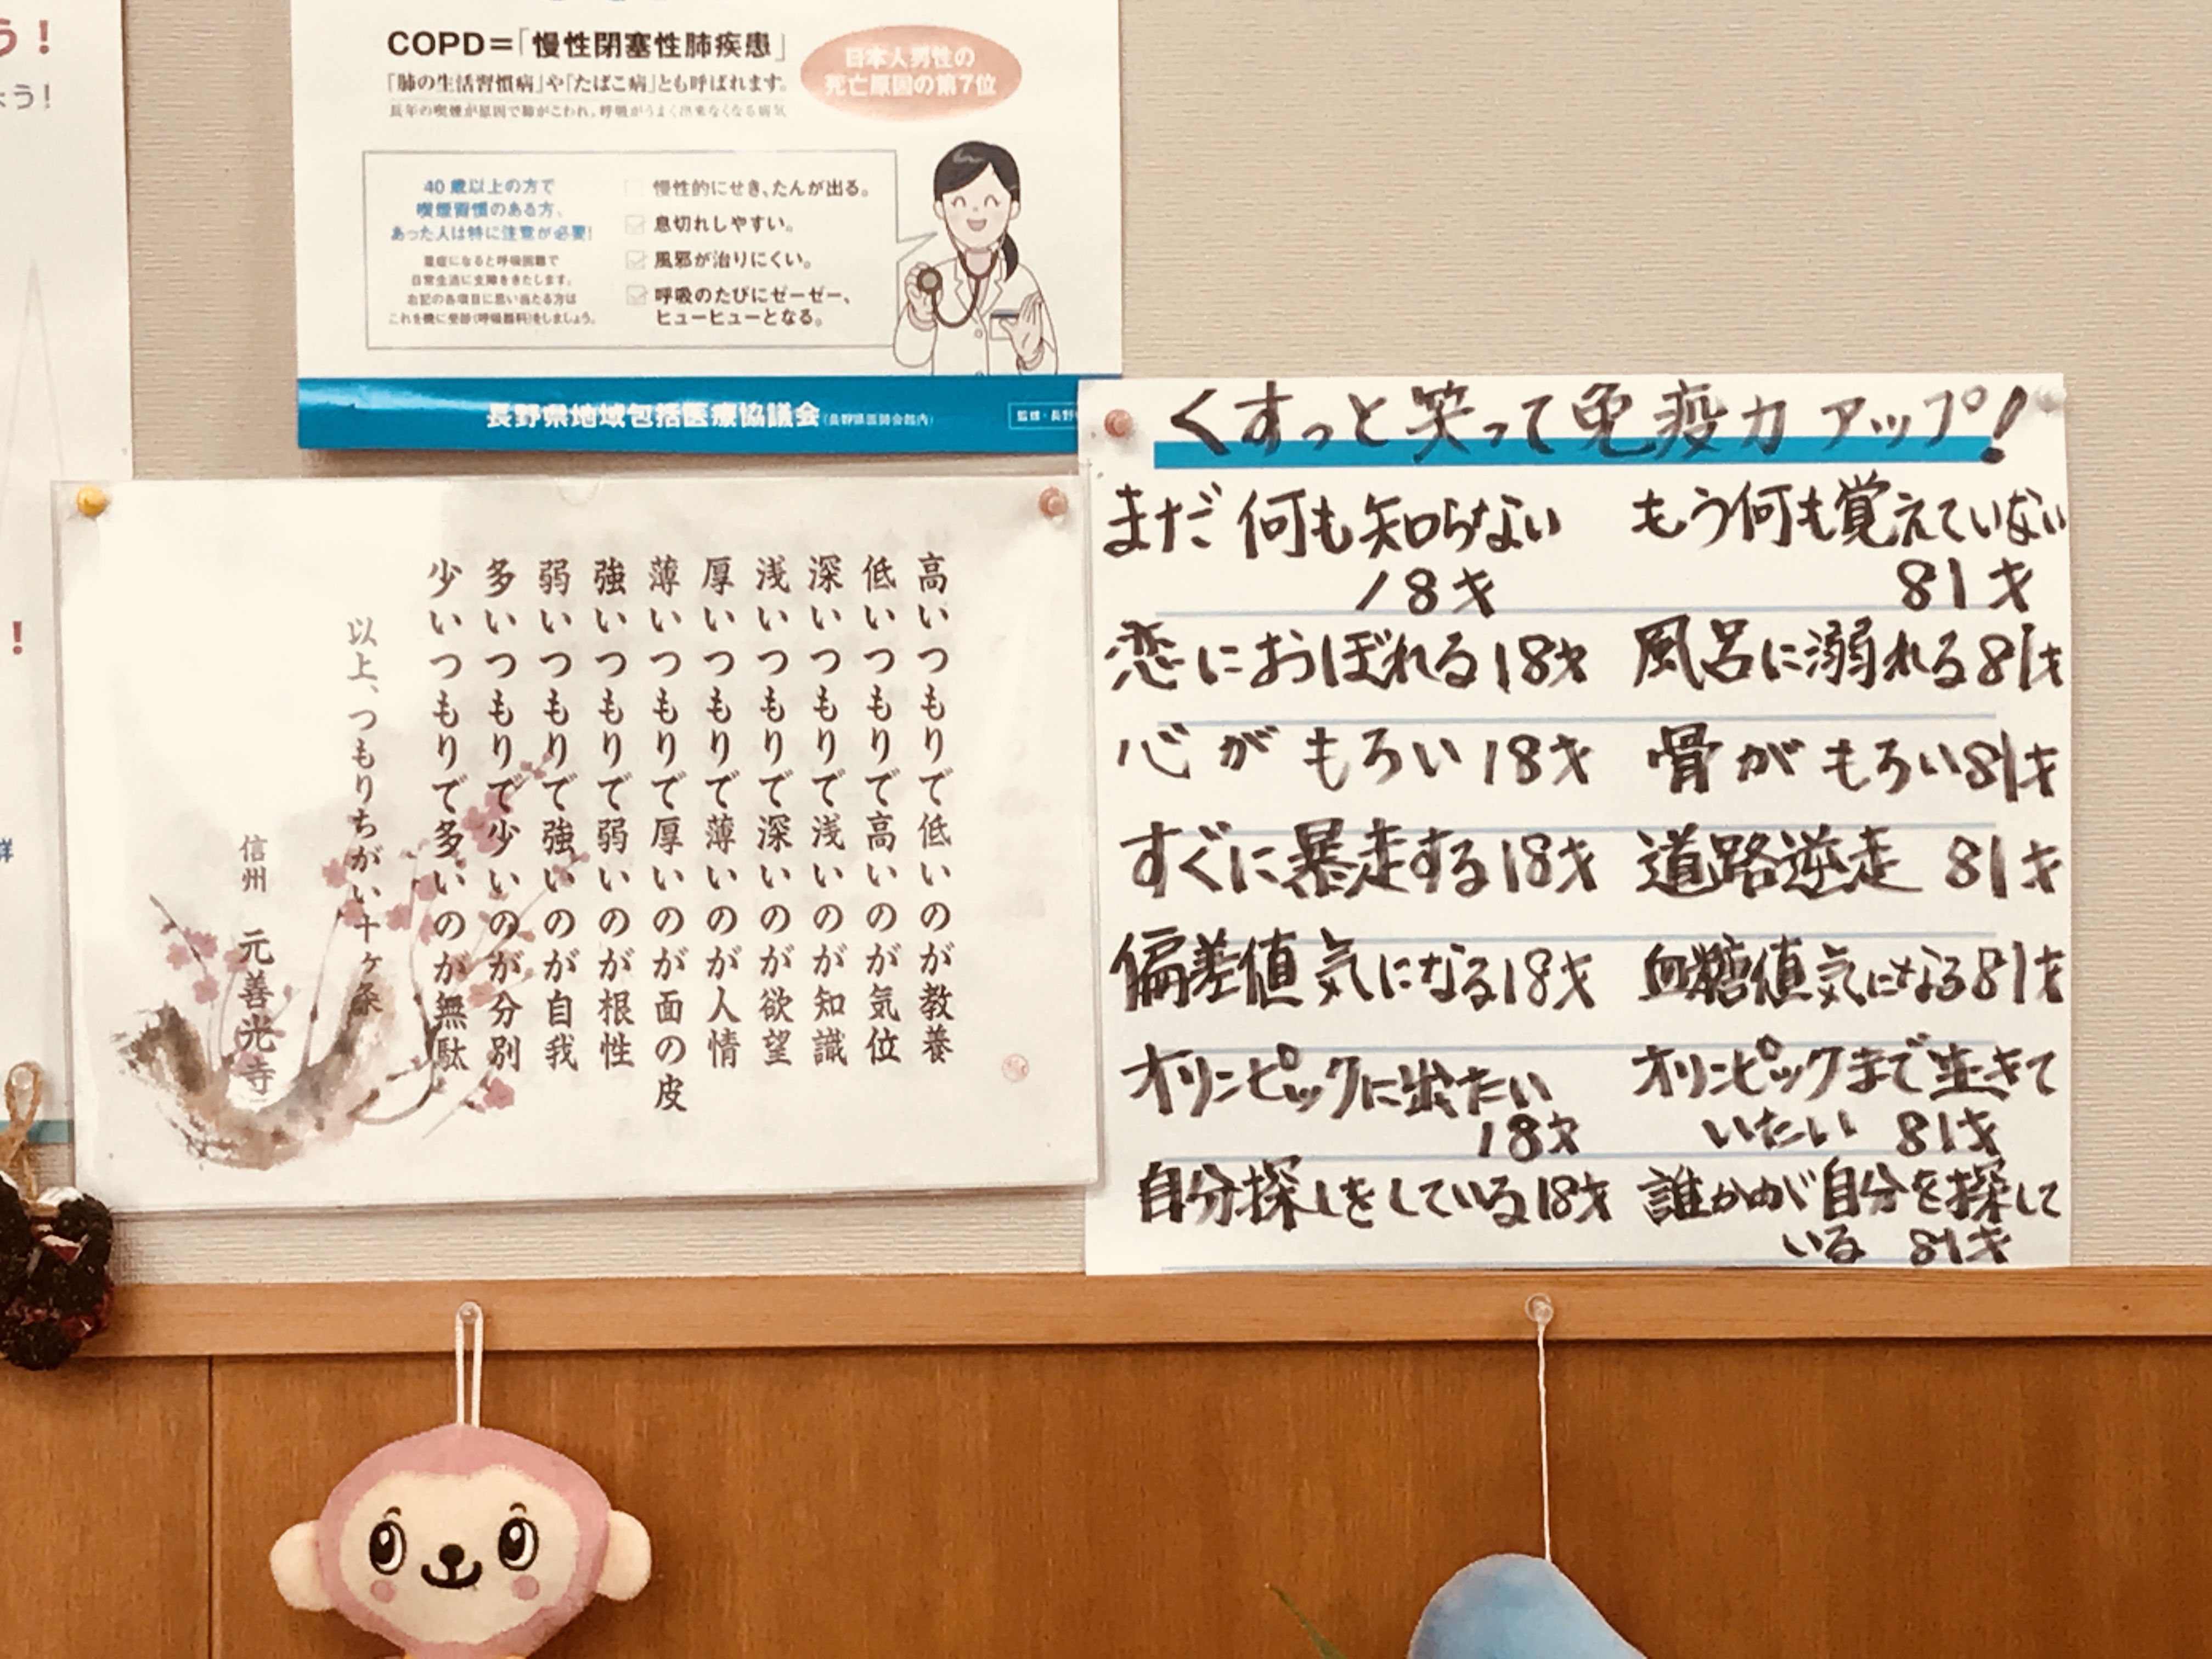 う！
ょう！
！
COPD＝「慢性閉塞性肺疾患」
「肺の生活習慣病」や「たばこ病」とも呼ばれます。
長年の喫煙が原因で肺がこわれ、呼吸がうまく出来なくなる病気
日本人男性の
死亡原因の第7位
40歳以上の方で
喫煙習慣のある方、
あった人は特に注意が必要！
重症になると呼吸困難で
日常生活に支障をきたします。
右記の各項目に思い当たる方は
これを機に受診（呼吸器科）をしましょう。
慢性的にせき、たんが出る。
息切れしやすい。
風邪が治りにくい。
呼吸のたびにゼーゼー、
ヒューヒューとなる。
長野県地域包括医療協議会（長野県医師会館内）
監修・長野
高いつもりで低いのが教養
低いつもりで高いのが気位
深いつもりで浅いのが知識
浅いつもりで深いのが欲望
厚いつもりで薄いのが人情
薄いつもりで厚いのが面の皮
強いつもりで弱いのが根性
弱いつもりで強いのが自我
多いつもりで少いのが分別
少いつもりで多いのが無駄
以上、つもりちがい十ヶ条
信州 元善光寺
くすっと笑って免疫力アップ！
まだ何も知らない 18才
もう何も覚えていない 81才
恋におぼれる18才 風呂に溺れる81才
心がもろい18才 骨がもろい81才
すぐに暴走する18才 道路逆走 81才
偏差値気になる18才 血糖値気になる81才
オリンピックに出たい
18才
オリンピックまで生きて
いたい 81才
自分探しをしている18才
誰かが自分を探して
いる 81才